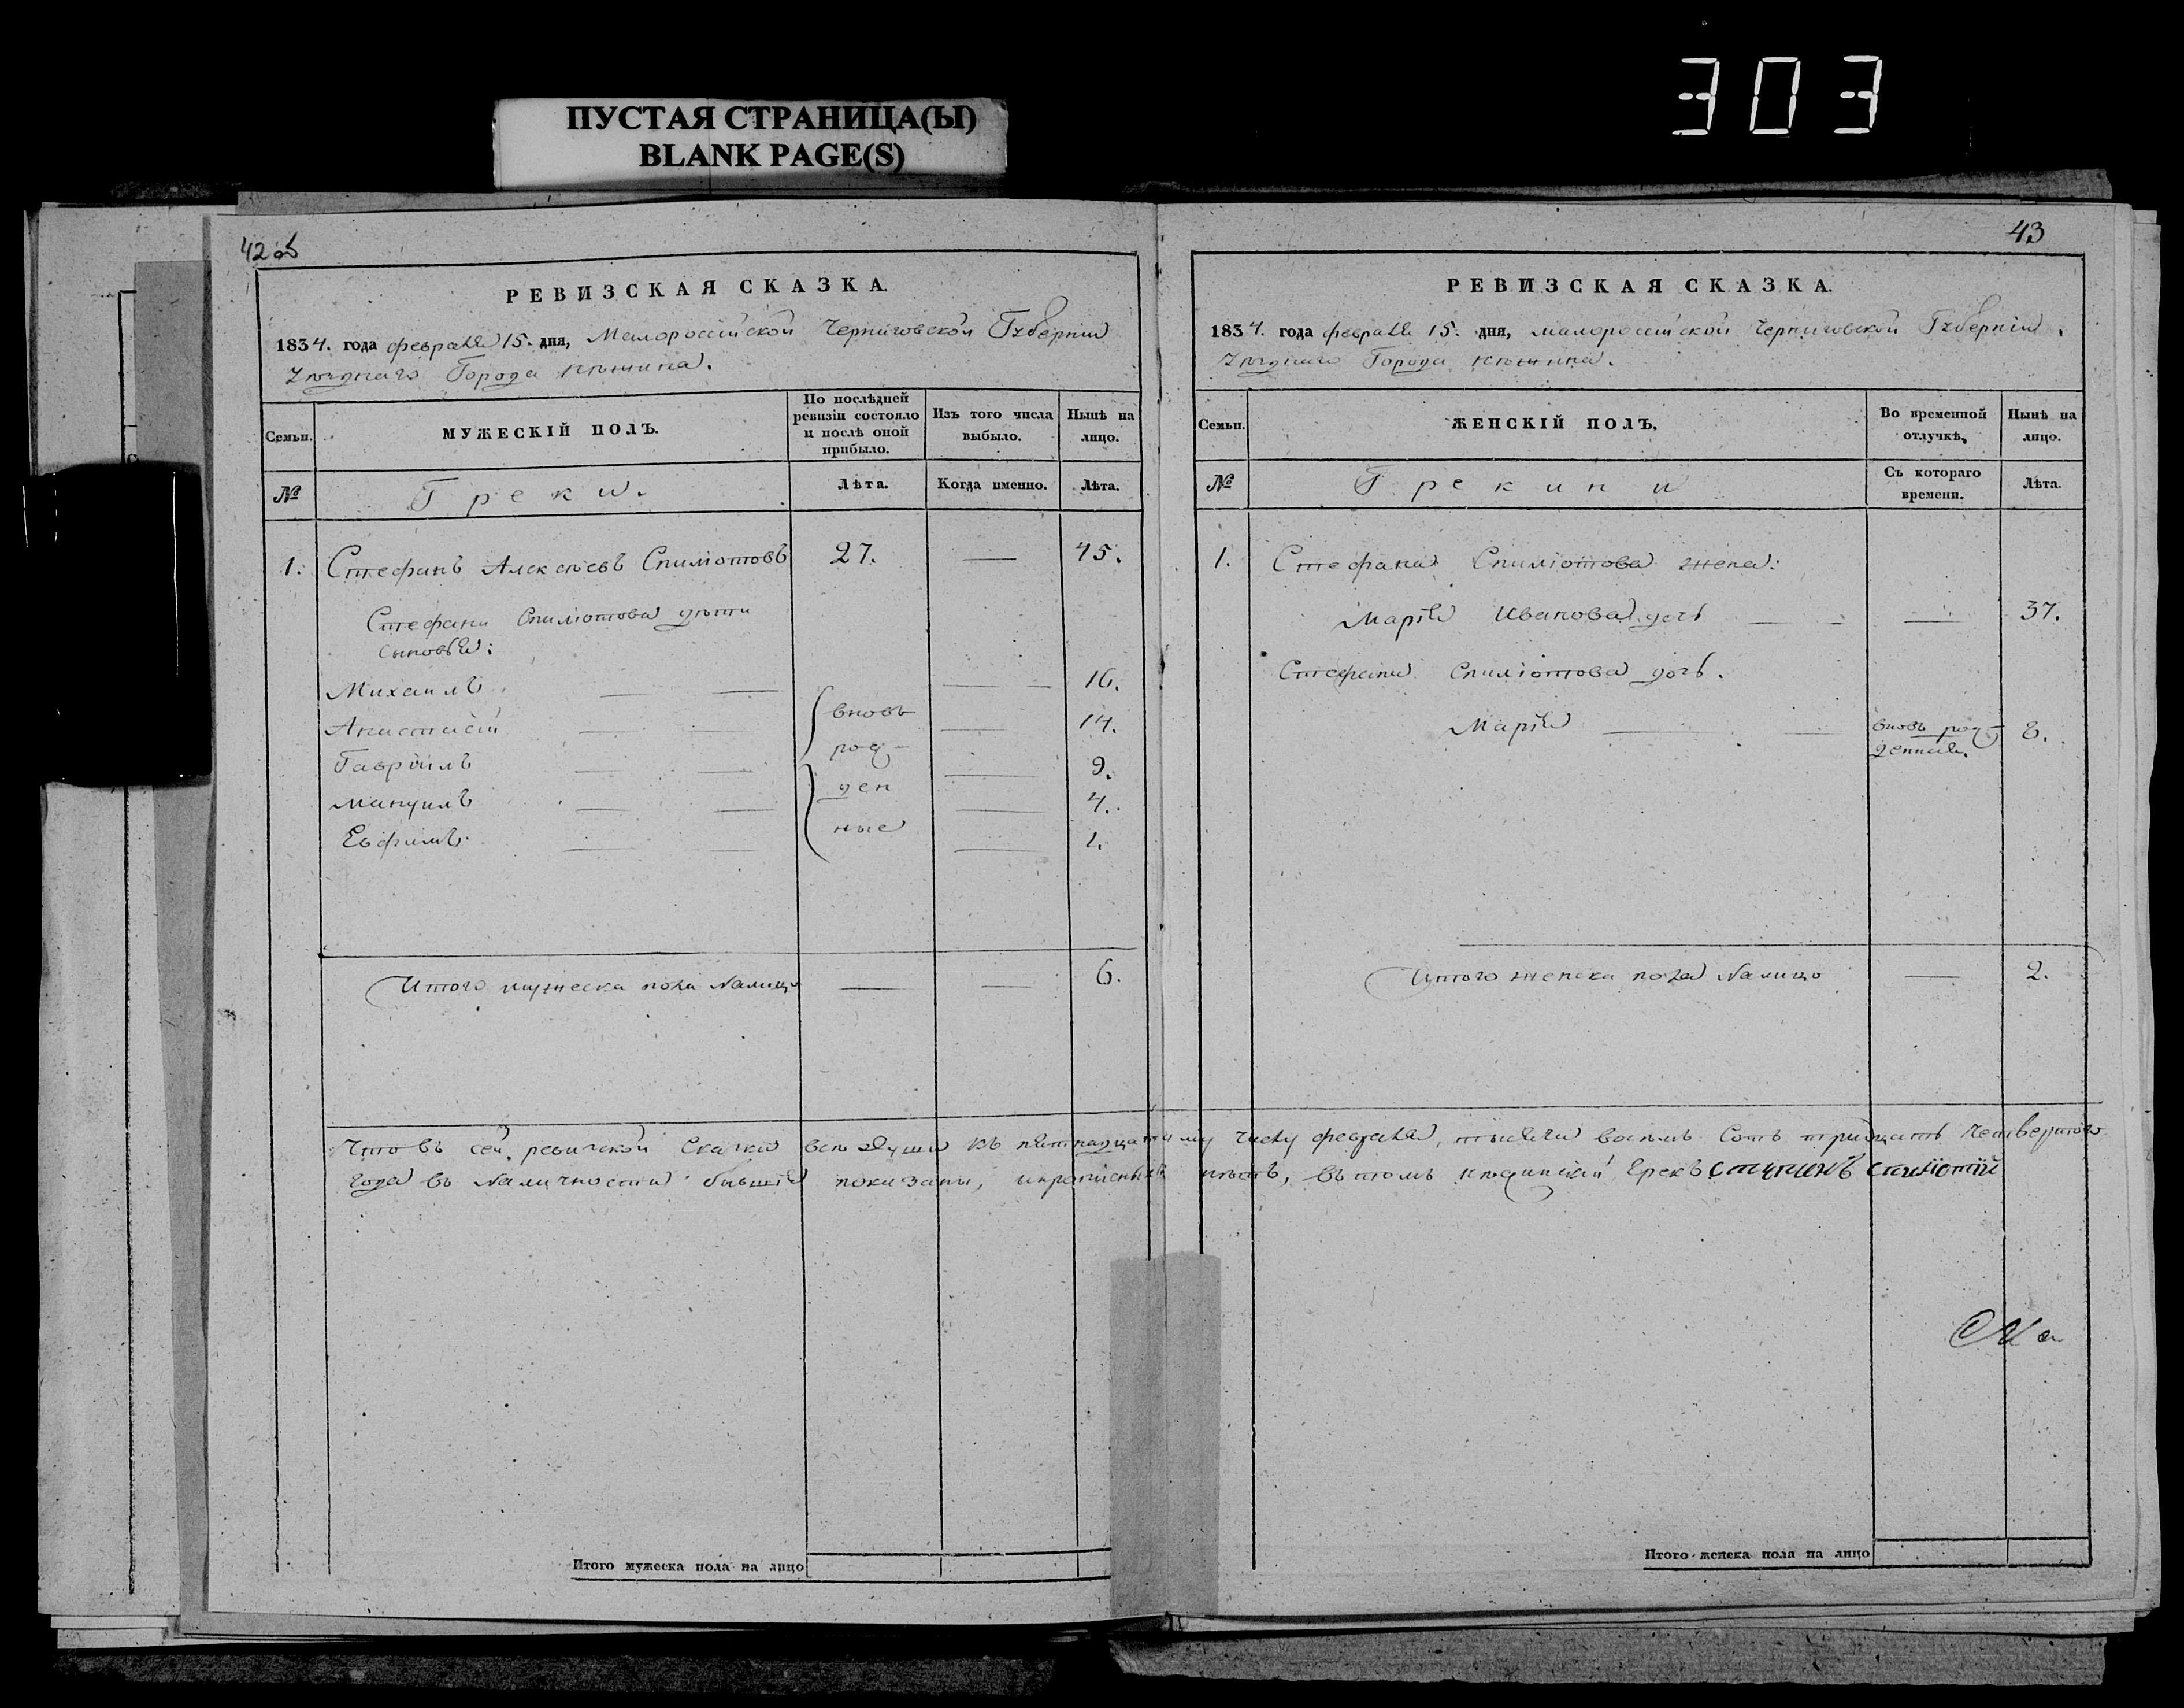 303
ПУСТАЯ СТРАНИЦА(Ы)
BLANK PAGE(S)
42 об
РЕВИЗСКАЯ СКАЗКА.
1834. года февраля 15. дня, Малороссійской Черниговской Губерніи
Уѣзднаго Города Нѣжина.
Семьи.
МУЖЕСКІЙ ПОЛЪ.
По послѣдней ревизіи состояло и послѣ оной прибыло.
Изъ того числа выбыло.
Нынѣ на лицо.
№
Греки.
Лѣта.
Когда именно.
Лѣта.
1. Стефанъ Алексѣевъ Спиліотовъ 27. — 45.
Стефана Спиліотова дѣти
сыновья:
Михаилъ — — — 16.
Анастасій — — вновь — 14.
Гавріилъ — — рож- — 9.
Мануилъ — — ден — 4.
Евфимъ — — ные — 1.
Итого мужеска пола налицо — — 6.
Итого мужеска пола на лицо
43
РЕВИЗСКАЯ СКАЗКА.
1834. года февраля 15. дня, малороссійской Черниговской Губерніи,
Уѣзднаго Города Нѣжина.
Семьи.
ЖЕНСКІЙ ПОЛЪ.
Во временной отлучкѣ.
Нынѣ на лицо.
№
Грекини
Съ котораго времени.
Лѣта.
1. Стефана Спиліотова жена:
Марія Иванова дочь — — — 37.
Стефана Спиліотова дочь.
Марія — — вновь рож- 8.
денная.
Итого женска пола налицо — 2.
Что въ сей ревизской Сказки всѣ души къ пятнадцатому числу февраля, тысяча восемь Сотъ тридцать четвертого
года въ наличности бывшія показаны, и прописныхъ нѣтъ, въ томъ нѣжинскій Грекъ степанъ спиліотій
Ма
Итого женска пола на лицо